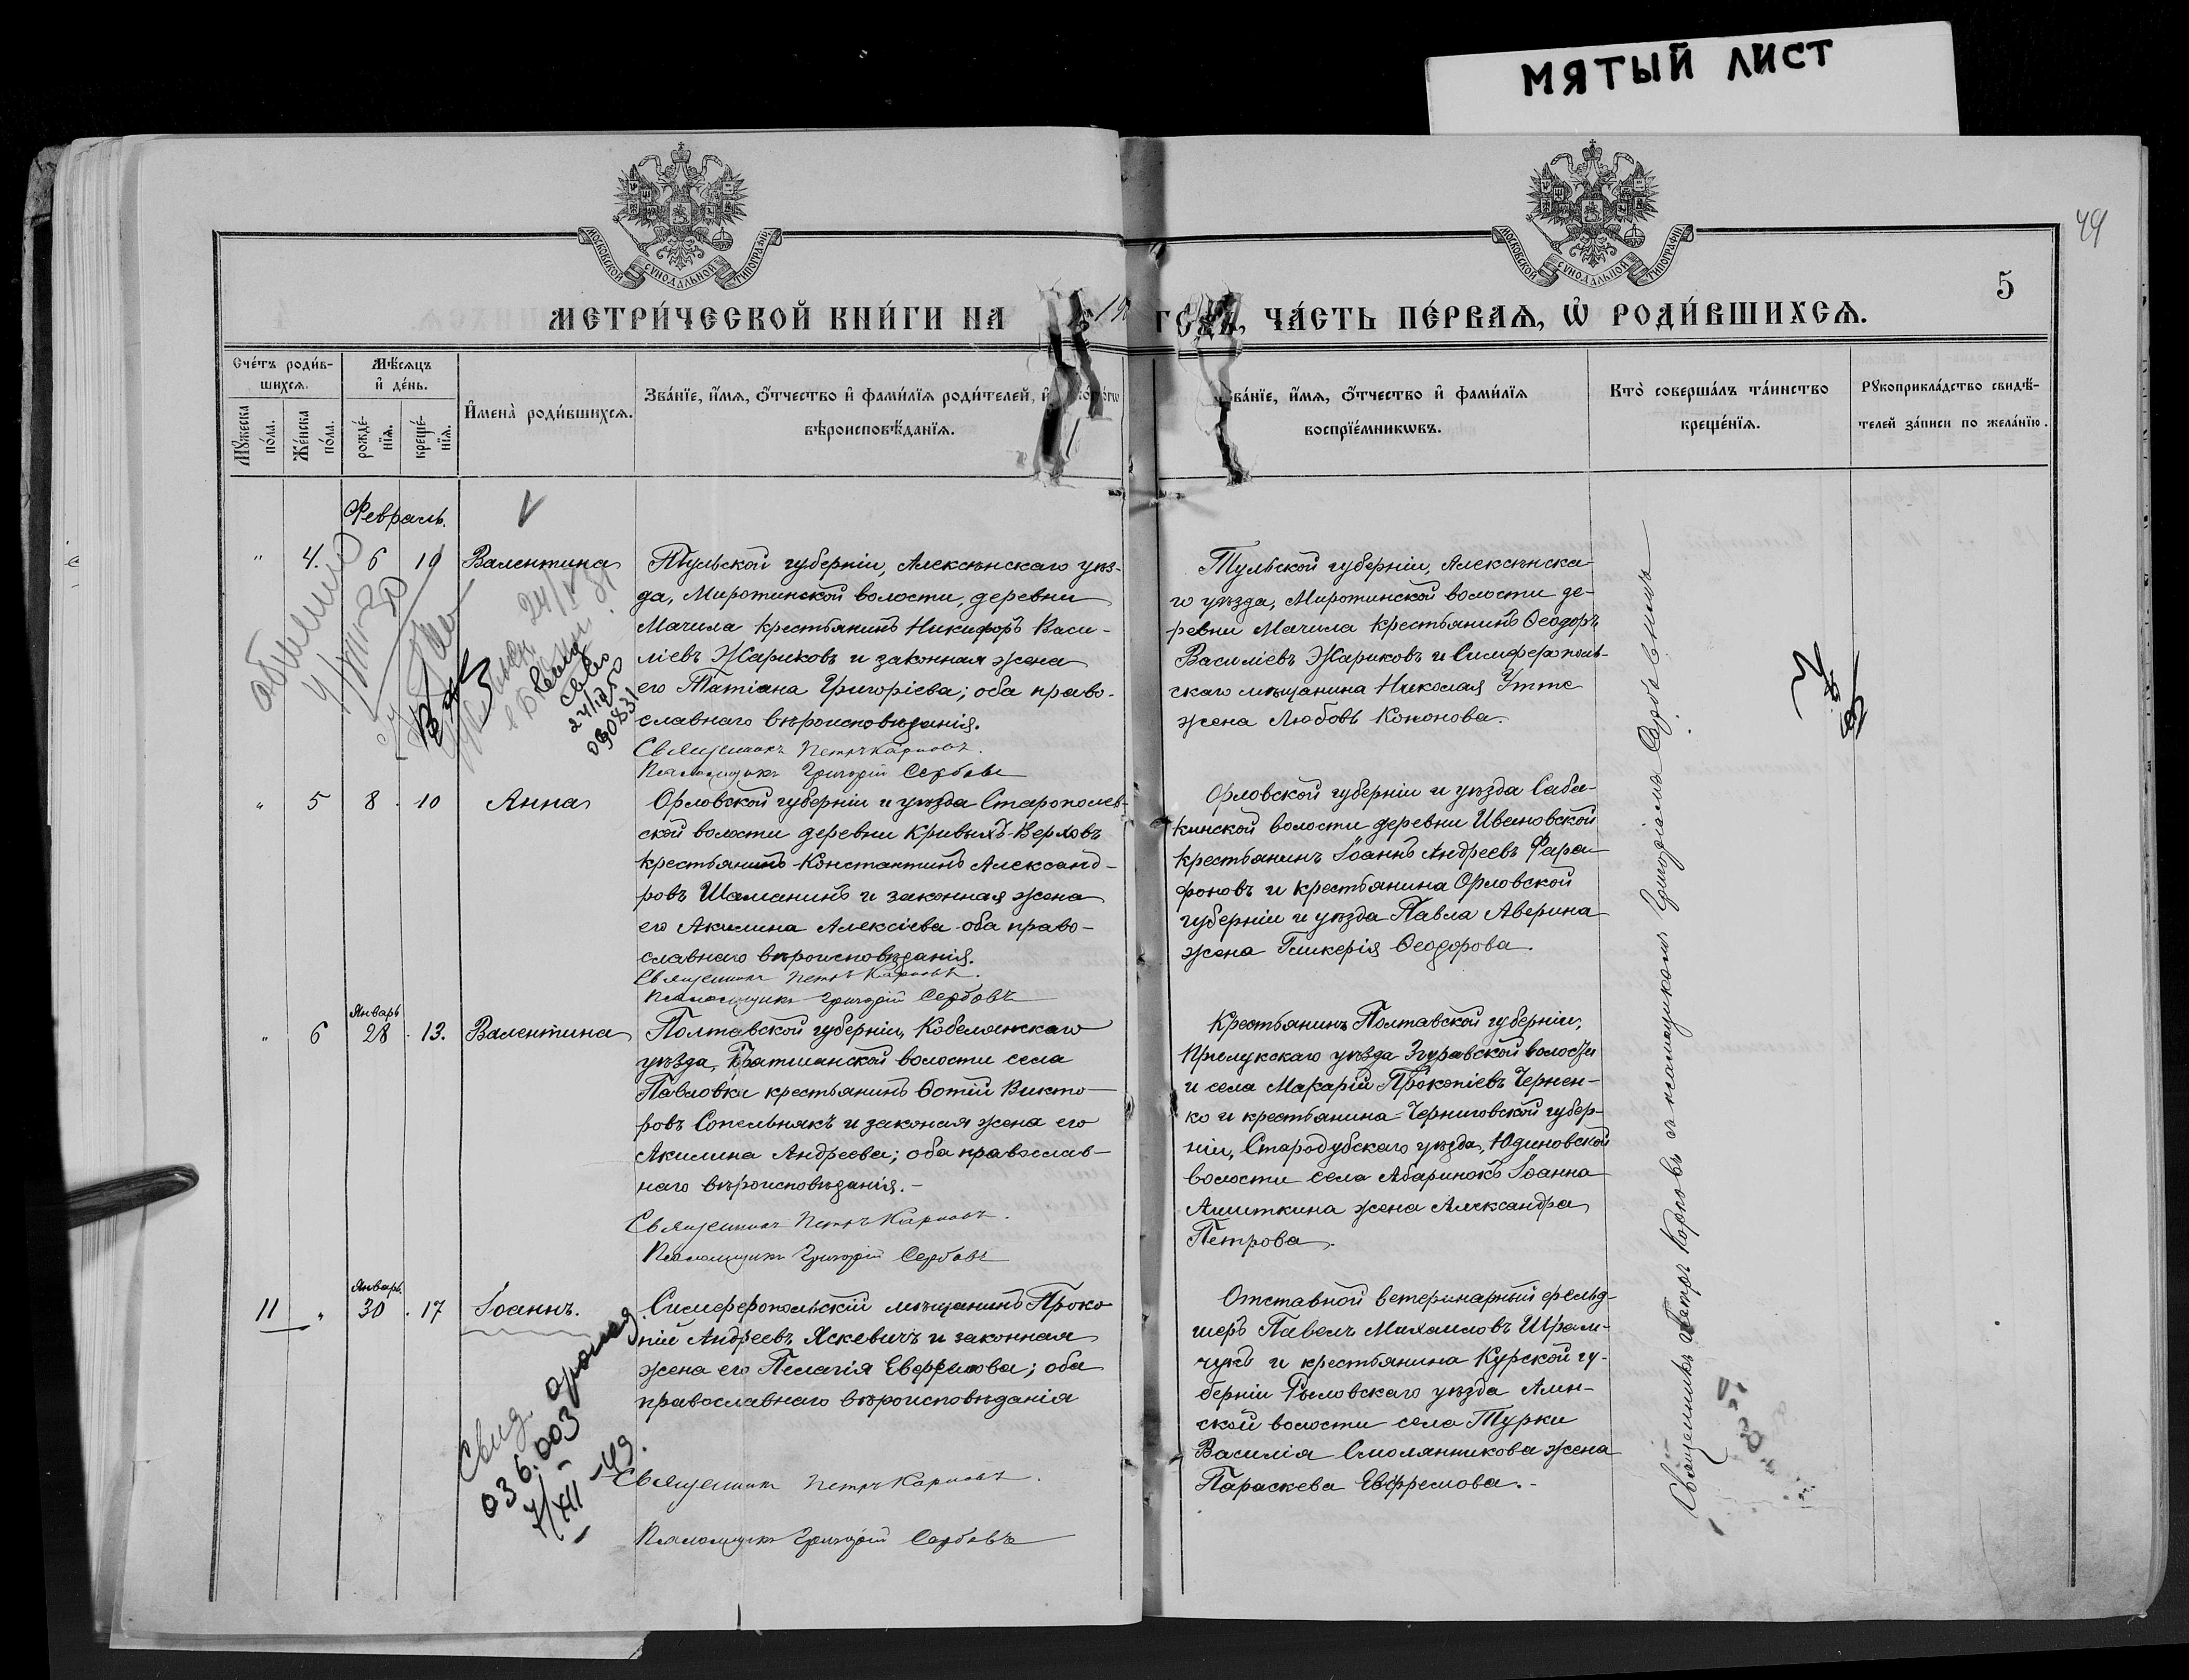 МЯТЫЙ ЛИСТ
49
МОСКОВСКОЙ СѴНОДАЛЬНОЙ ТИПОГРАФІИ
МОСКОВСКОЙ СѴНОДАЛЬНОЙ ТИПОГРАФІИ
5
МЕТРИ́ЧЕСКОЙ КНИ́ГИ НА 19
ЧА́СТЬ ПЕ́РВАѦ, Ѡ҆ РОДИ́ВШИХСѦ.
Сче́тъ роди́в-
шихсѧ.
Мꙋ́жеска по́ла.
Же́нска по́ла.
Мѣ́сѧцъ и҆ де́нь.
рожде́-нїѧ.
креще́-нїѧ.
И҆мена̀ роди́вшихсѧ.
Зва́нїе, и҆́мѧ, ѻ҆́тчество и҆ фами́лїѧ роди́телей, и҆
вѣроисповѣ́данїѧ.
Зва́нїе, и҆́мѧ, ѻ҆́тчество и҆ фами́лїѧ
воспрїе́мникѡвъ.
Кто̀ соверша́лъ та́инство
креще́нїѧ.
Рꙋкоприкла́дство свидѣ́-
телей за́писи по жела́нїю.
Февраль.
" 4. 6 10 Валентина
Тульской губерніи, Алексинскаго уѣз-
да, Миротинской волости, деревни
Мачила крестьянинъ Никифоръ Васи-
ліевъ Жариковъ и законная жена
его Татіана Григоріева; оба право-
славнаго вѣроисповѣданія.
Священникъ Петръ Карповъ.
Псаломщикъ Григорій Сербовъ
Тульской губерніи, Алексинска-
го уѣзда, Миротинской волости де-
ревни Мачила крестьянинъ Ѳеодоръ
Василіевъ Жариковъ и Симферополь-
скаго мѣщанина Николая Утте
жена Любовь Кононова.
" 5 8 10 Анна
Орловской губерніи и уѣзда Старополев-
ской волости деревни Кривыхъ-Верховъ
крестьянинъ Константинъ Александ-
ровъ Шаманинъ и законная жена
его Акилина Алексіева оба право-
славнаго вѣроисповѣданія.
Священникъ Петръ Карповъ.
Псаломщикъ Григорій Сербовъ
Орловской губерніи и уѣзда Саба-
кинской волости деревни Ивановской
крестьянинъ Іоаннъ Андреевъ Фара-
фоновъ и крестьянина Орловской
губерніи и уѣзда Павла Аверина
жена Гликерія Ѳеодорова.
Январь
" 6 28 13. Валентина
Полтавской губерніи, Кобелянскаго
уѣзда, волости села
Павловки крестьянинъ Фотій Викто-
ровъ Сопельнякъ и законая жена его
Акилина Андреева; оба православ-
наго вѣроисповѣданія.-
Священникъ Петръ Карповъ.
Псаломщикъ Григорій Сербовъ
Крестьянинъ Полтавской губерніи,
Прилукскаго уѣзда Згуравской волости
и села Макарій Прокопіевъ Чернен-
ко и крестьянина Черниговской губер-
ніи, Стародубскаго уѣзда, Юдиновской
волости села Абаринокъ Іоанна
Алиткина жена Александра
Петрова.
Январь.
11 " 30 17 Іоаннъ.
Симферопольскій мѣщанинъ Проко-
пій Андреевъ Яскевичъ и законная
жена его Пелагія Евфимова; оба
православнаго вѣроисповѣданія
Священникъ Петръ Карповъ.
Псаломщикъ Григорій Сербовъ
Отставной ветеринарный фельд-
шеръ Павелъ Михаиловъ Шрам-
чукъ и крестьянина Курской гу-
берніи Рыловскаго уѣзда Амн-
ской волости села Турки
Василія Смолянникова жена
Параскева Евфремова.-
Свид.
036.003
7/XII-49.
Священникъ Петръ Карповъ съ псаломщикомъ Григоріемъ Сербовымъ